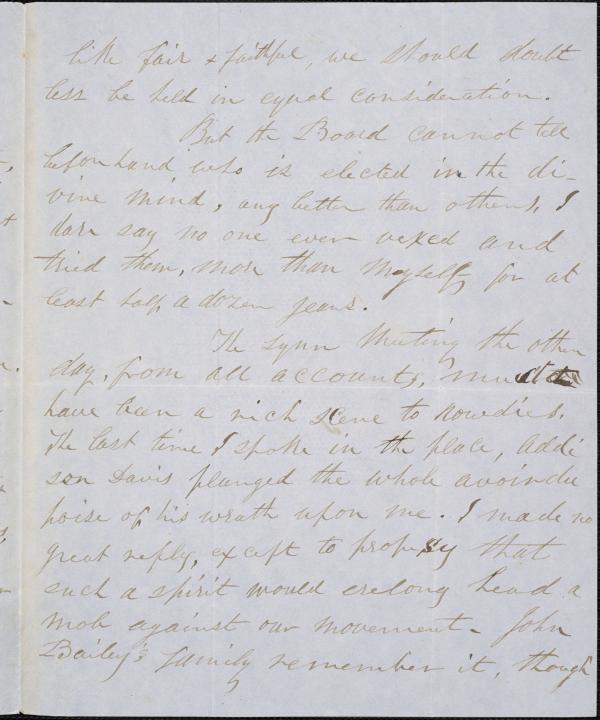 like fair & faithful, we should doubt
less be held in equal consideration.
But the Board cannot tell
beforehand who is elected in the di-
vine mind, any better than others. I
dare say no one ever vexed and
tried them, more than myself, for at
least half a dozen years.
The Lynn Meeting the other
day, from all accounts, must
have been a rich scene to Rowdies.
The last time I spoke in the place, Addi
son Davis plunged the whole avoirdu
poise of his wrath upon me. I made no
great reply, except to prophsy that
such a spirit would erelong head a
mob against our movement. John
Bailey's family remember it, though